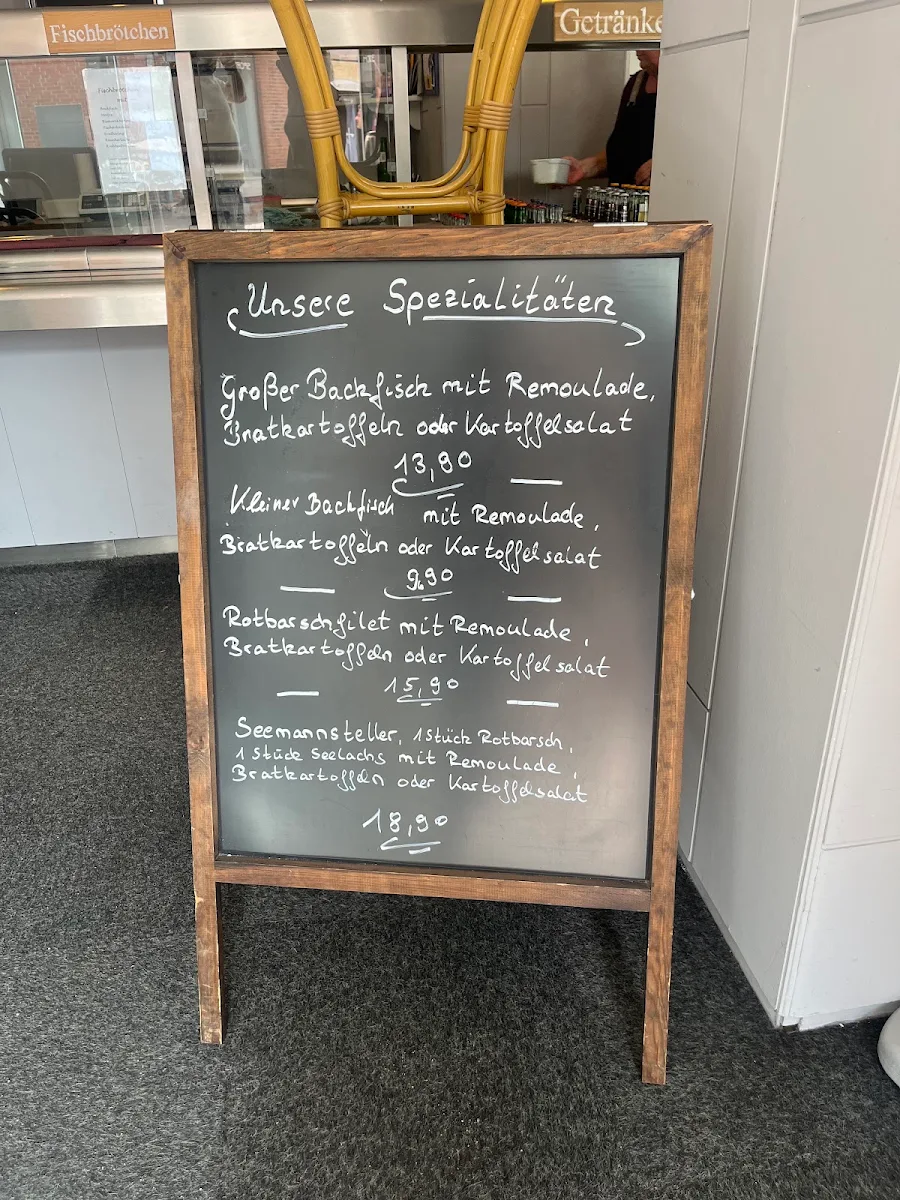 Fischbrötchen
Getränke
Unsere Spezialitäten
Großer Backfisch mit Remoulade,
Bratkartoffeln oder Kartoffelsalat
13,90
Kleiner Backfisch mit Remoulade,
Bratkartoffeln oder Kartoffelsalat
9,90
Rotbarschfilet mit Remoulade,
Bratkartoffeln oder Kartoffelsalat
15,90
Seemannsteller, 1 Stück Rotbarsch,
1 Stück Seelachs mit Remoulade,
Bratkartoffeln oder Kartoffelsalat
18,90